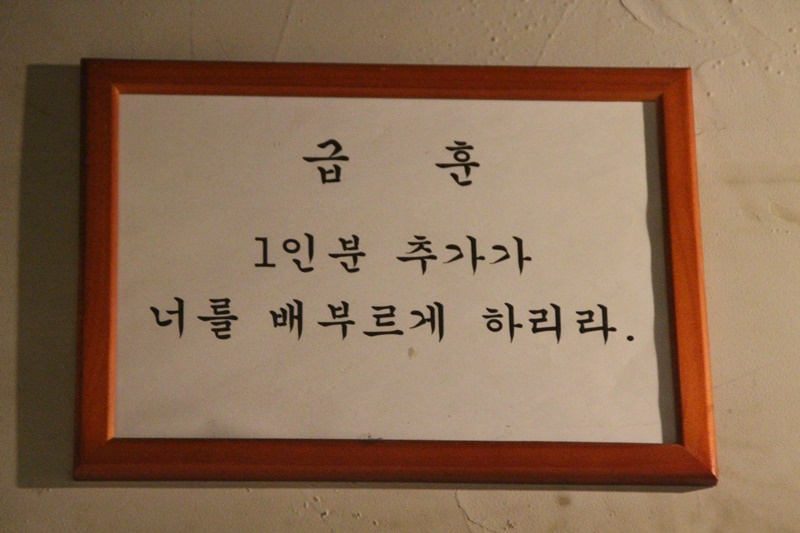 급 훈
1인분 추가가
너를 배부르게 하리라.